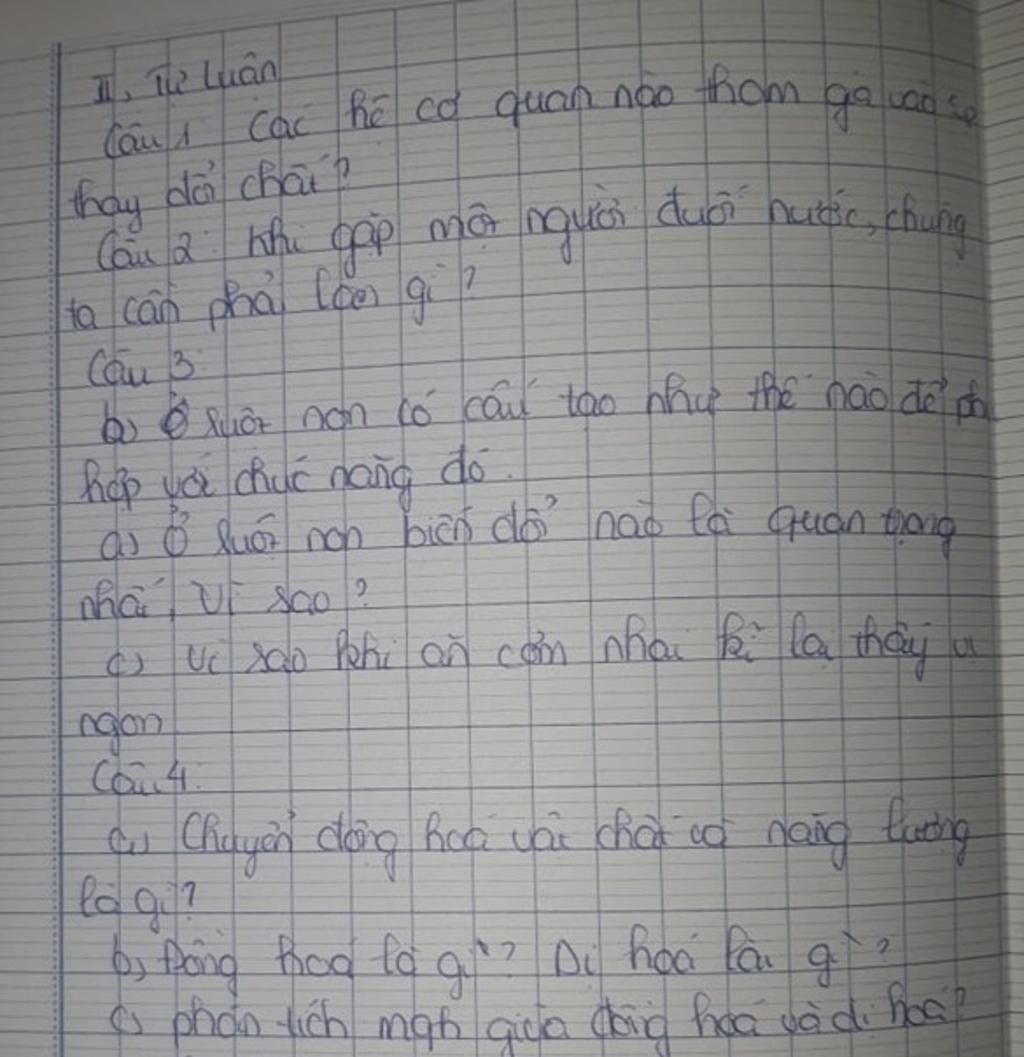 II, Tự luận
Câu 1 Các hệ cơ quan nào tham gia vào sự
thay đổi chất?
Câu 2: Khi gặp một người đuối nước, chúng
ta cần phải làm gì?
Câu 3:
b) Ở ruột non có cấu tạo như thế nào để ph
hợp với chức năng đó.
a) Ở ruột non biến đổi nào là quan trọng
nhất, Vì sao?
c) Vì sao khi ăn cơm nhai kĩ lại thấy
ngon
Câu 4:
a) Chuyển động hoá vật chất và năng lượng
là gì?
b, Đồng hoá là gì? Dị hoá là gì?
c) phân tích mqh giữa đồng hoá và dị hoá?